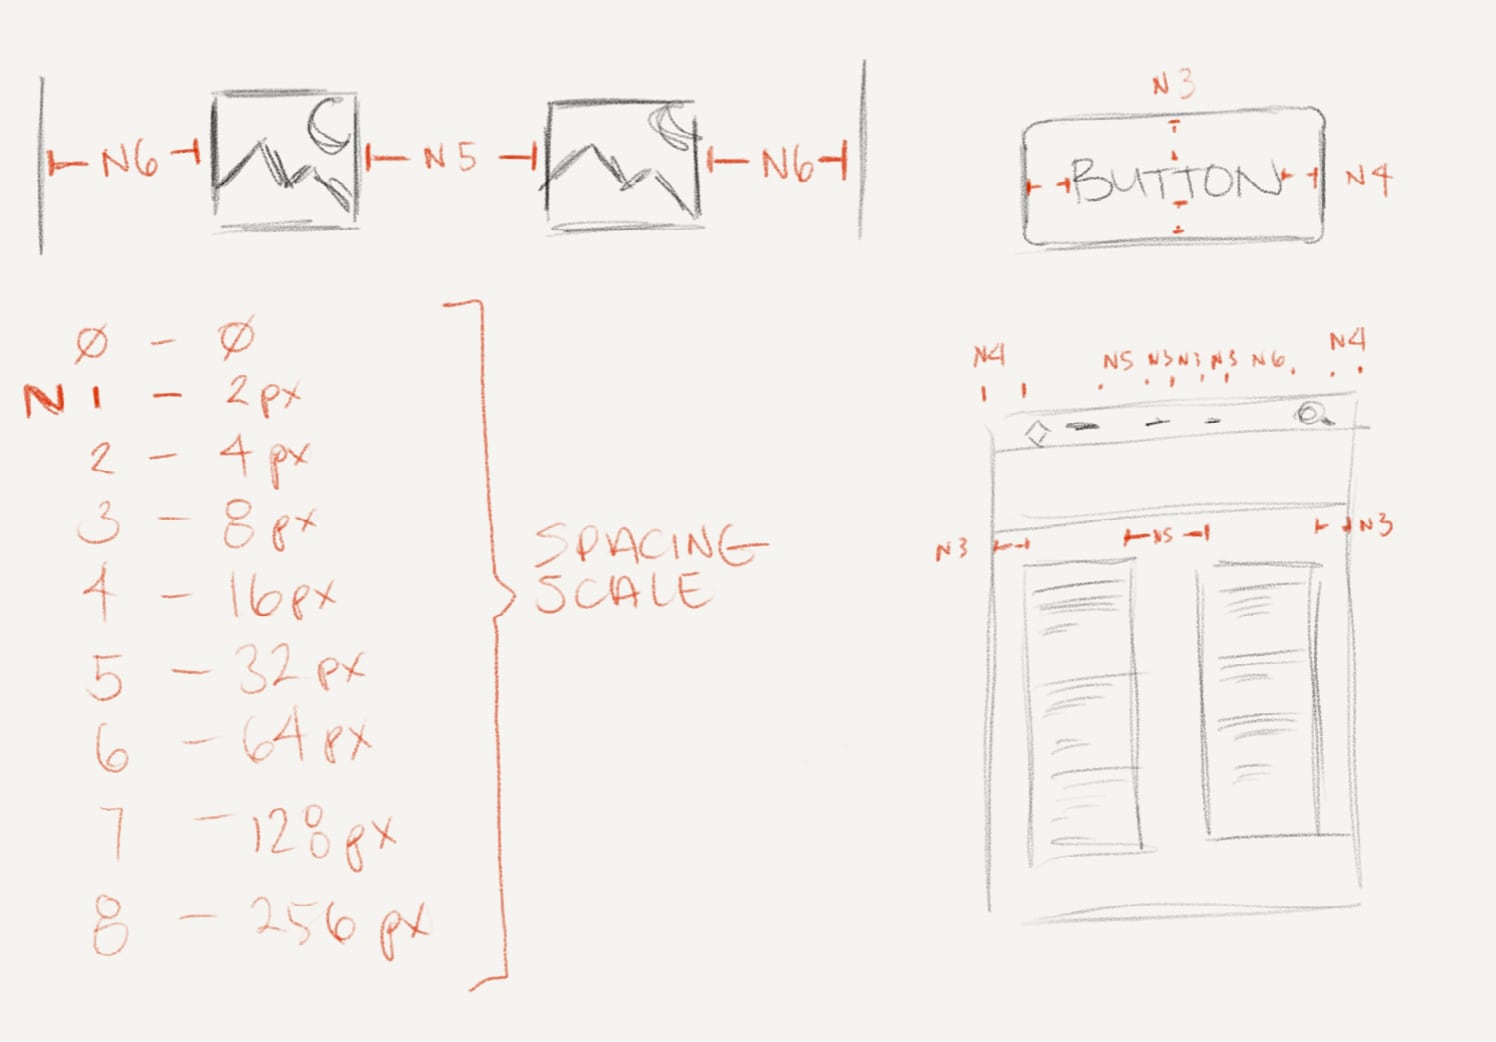 N6 N5 N6
N3
BUTTON
N4
Ø - Ø
N 1 - 2px
2 - 4px
3 - 8px
4 - 16px
5 - 32px
6 - 64px
7 - 128px
8 - 256px
SPACING
SCALE
N4 N5 N3 N3 N6 N4
N3 N5 N3